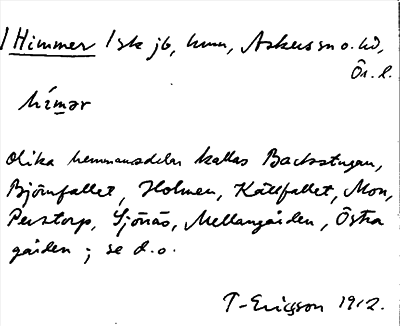 / Himmer 1 sk jb, hmn, Askerssn o. hd,
Ör. l.
hímər
Olika hemmansdelar kallas Backstugan,
Björnfallet, Holmen, Källfallet, Mon,
Perstorp, Sjönäs, Mellangården, Östra
gården ; se d.o.
T-Ericsson 1912.